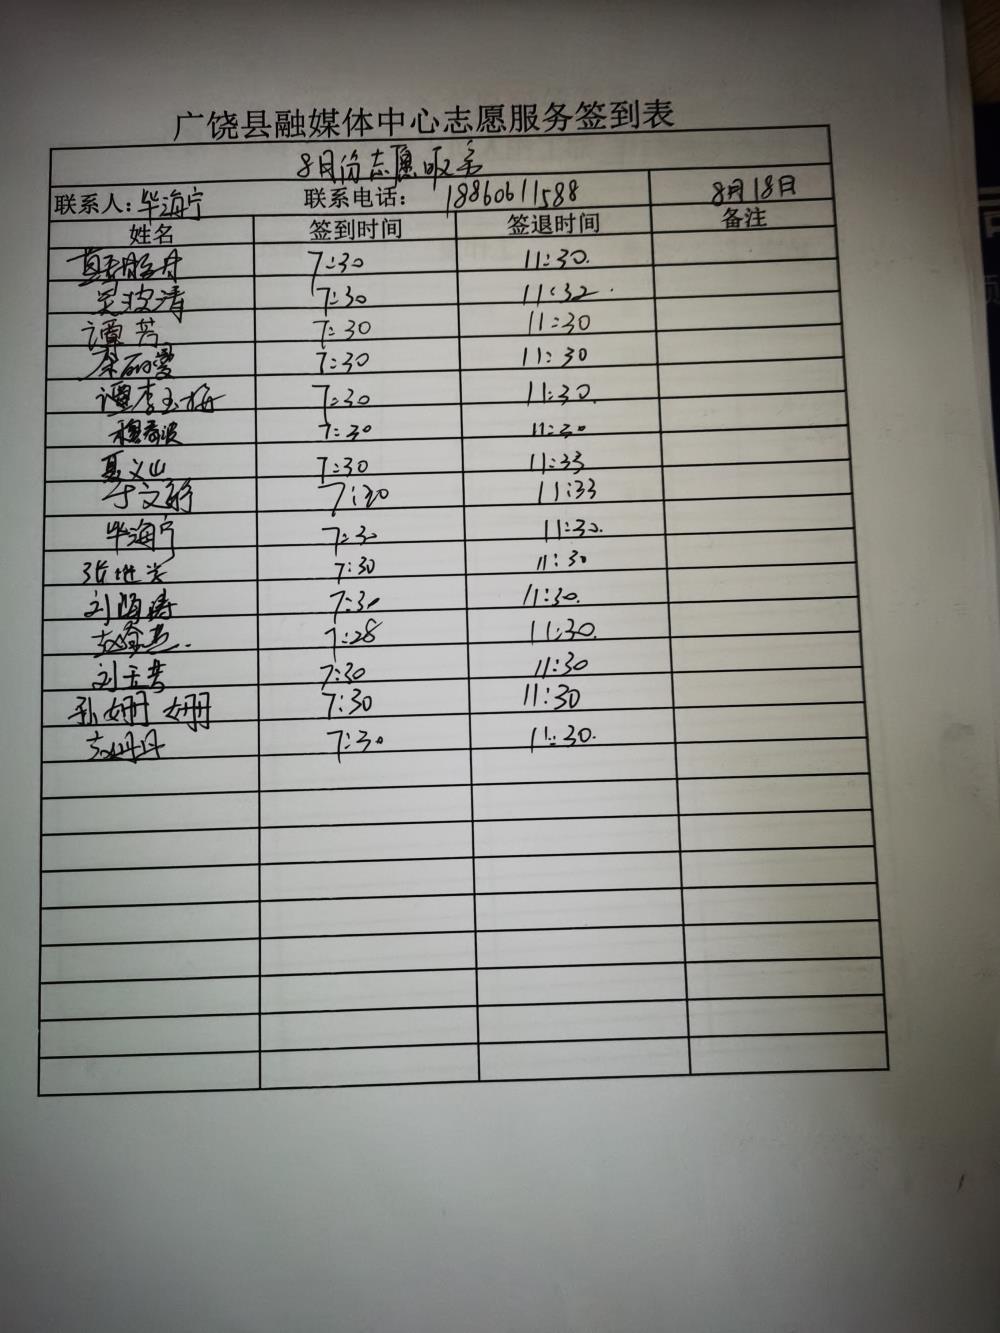 广饶县融媒体中心志愿服务签到表
8月份志愿服务
联系人：毕海宁 联系电话： 18860611588 8月18日
姓名 签到时间 签退时间 备注
7:30 11:30.
7:30 11:32
谭芳 7:30 11:30
7:30 11:30
谭李玉梅 7:30 11:30.
7:30 11:30
聂义山 7:30 11:33
7:30 11:33
毕海宁 7:30 11:30.
7:30 11:30
7:30 11:30.
7:28 11:30.
7:30 11:30
孙姗姗 7:30 11:30
赵丹丹 7:30 11:30.